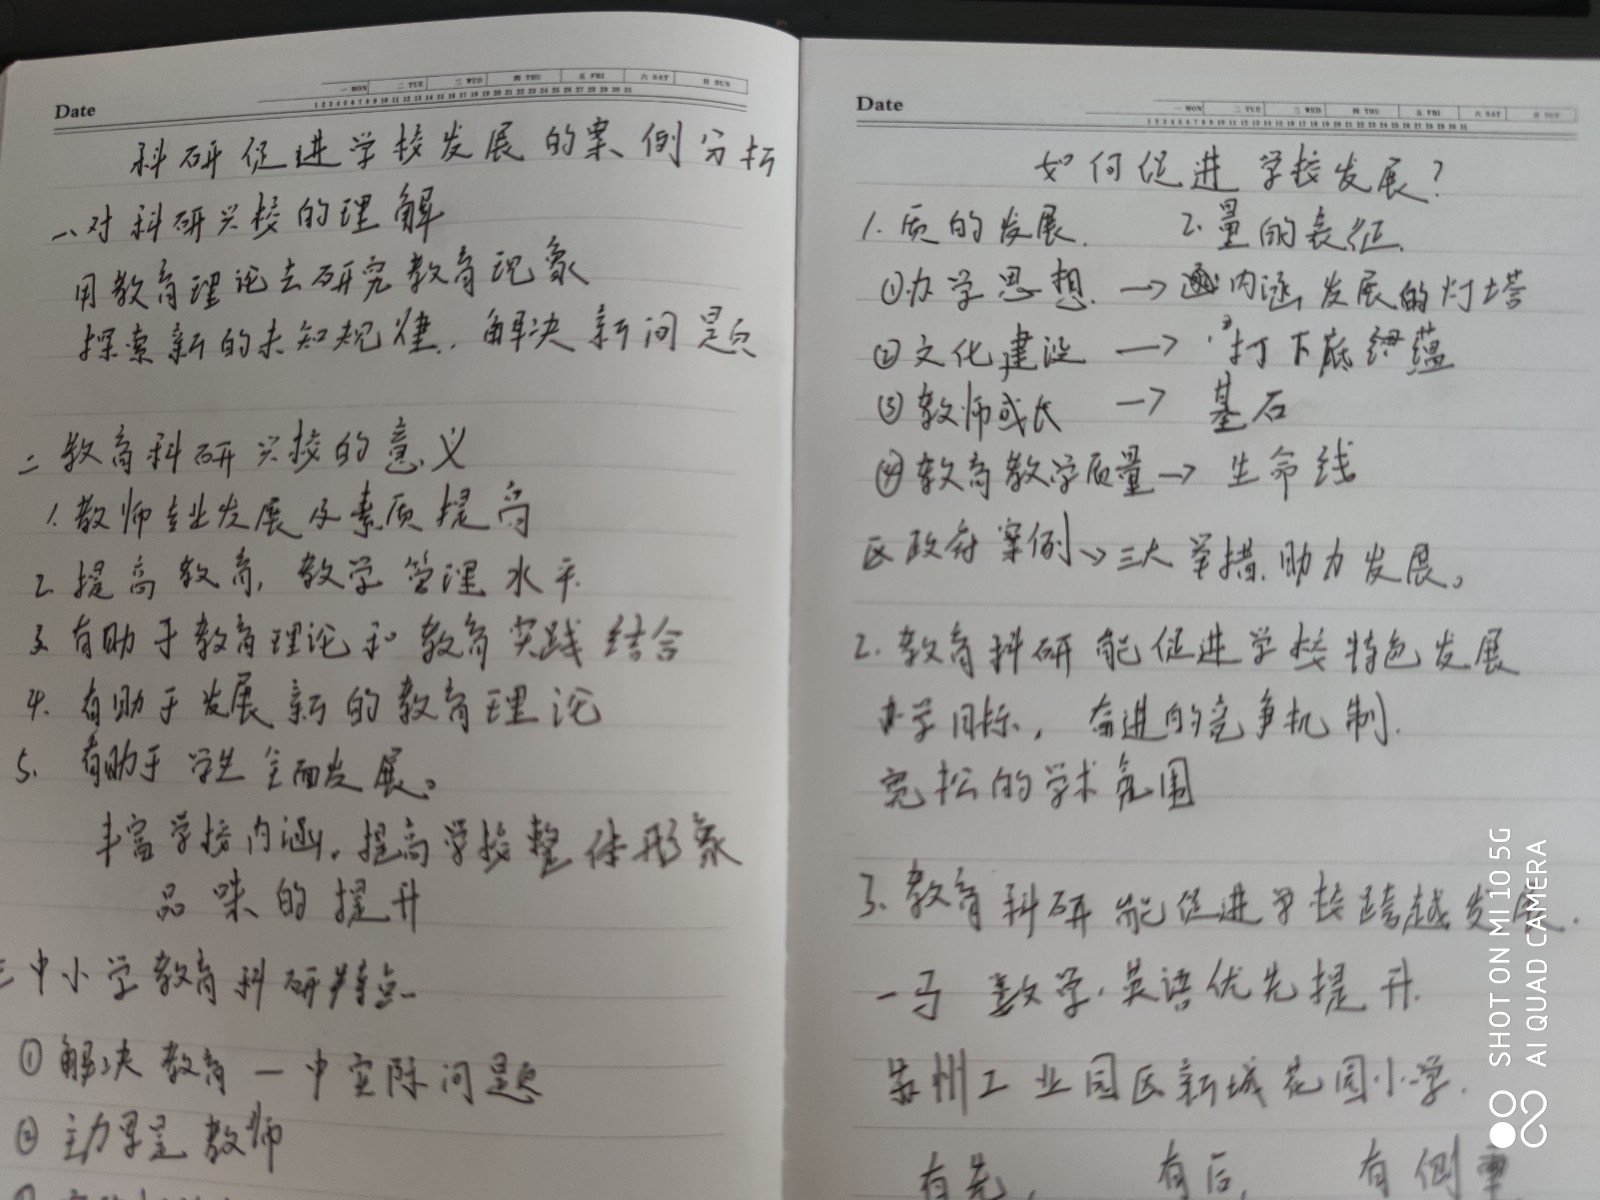 Date
一 MON 二 TUE 三 WED 四 THU 五 FRI 六 SAT 日 SUN
1 2 3 4 5 6 7 8 9 10 11 12 13 14 15 16 17 18 19 20 21 22 23 24 25 26 27 28 29 30 31
科研促进学校发展的案例分析
一、对科研兴校的理解
用教育理论去研究教育现象
探索新的未知规律,解决新问题
二 教育科研兴校的意义
1. 教师专业发展及素质提高
2. 提高教育,教学管理水平.
3. 有助于教育理论和教育实践结合
4. 有助于发展新的教育理论
5. 有助于学生全面发展。
丰富学校内涵,提高学校整体形象
品味的提升
三 中小学教育科研特点
① 解决教育一中实际问题
② 主力军是教师
Date
一 MON 二 TUE 三 WED 四 THU 五 FRI 六 SAT 日 SUN
1 2 3 4 5 6 7 8 9 10 11 12 13 14 15 16 17 18 19 20 21 22 23 24 25 26 27 28 29 30 31
如何促进学校发展?
1. 质的发展. 2. 量的表征.
①办学思想. → 内涵发展的灯塔
② 文化建设 → 打下底蕴
③ 教师成长 → 基石
④ 教育教学质量→ 生命线
区政府案例→三大举措.助力发展。
2. 教育科研能促进学校特色发展
办学目标, 奋进的竞争机制.
宽松的学术氛围
3. 教育科研能促进学校跨越发展.
数学.英语优先提升.
苏州工业园区新城花园小学.
有先, 有后, 有侧重
SHOT ON MI 10 5G
AI QUAD CAMERA